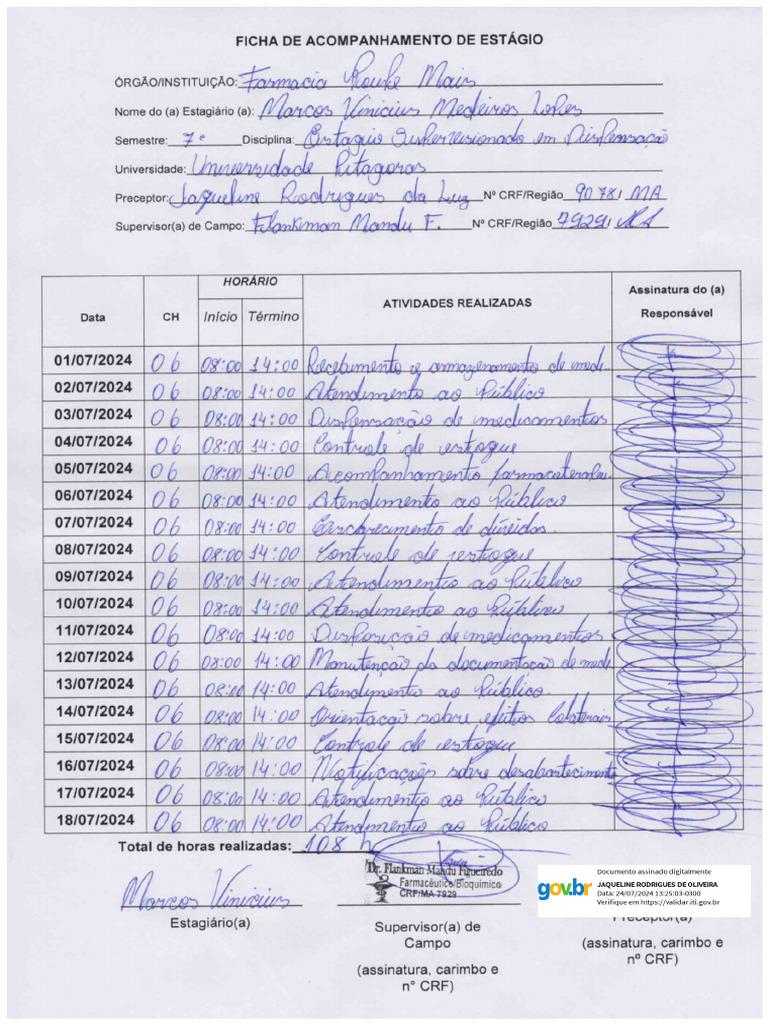 FICHA DE ACOMPANHAMENTO DE ESTÁGIO
ÓRGÃO/INSTITUIÇÃO: Farmacia Mais
Nome do (a) Estagiário (a): Marcos Vinicius Medeiros Lopes
Semestre: 7º Disciplina: Estagio Supervisionado em Dispensação
Universidade: Universidade Pitagoras
Preceptor: Jaqueline Rodrigues da Luz Nº CRF/Região 9078/ MA
Supervisor(a) de Campo: Flankiman Mandu F. Nº CRF/Região 7929/ MA
Data CH HORÁRIO Início Término ATIVIDADES REALIZADAS Assinatura do (a) Responsável
01/07/2024 06 08:00 14:00 Recebimento e armazenamento de med.
02/07/2024 06 08:00 14:00 Atendimento ao Público
03/07/2024 06 08:00 14:00 Dispensação de medicamentos
04/07/2024 06 08:00 14:00 Controle de estoque
05/07/2024 06 08:00 14:00 Acompanhamento
06/07/2024 06 08:00 14:00 Atendimento ao Público
07/07/2024 06 08:00 14:00 Esclarecimento de dúvidas
08/07/2024 06 08:00 14:00 Controle de estoque
09/07/2024 06 08:00 14:00 Atendimento ao Público
10/07/2024 06 08:00 14:00 Atendimento ao Público
11/07/2024 06 08:00 14:00 Disposição de medicamentos
12/07/2024 06 08:00 14:00 Manutenção da documentação de med
13/07/2024 06 08:00 14:00 Atendimento ao Público
14/07/2024 06 08:00 14:00 Orientação sobre efeitos Colaterais
15/07/2024 06 08:00 14:00 Controle de estoque
16/07/2024 06 08:00 14:00 Notificações sobre desabastecimento
17/07/2024 06 08:00 14:00 Atendimento ao Público
18/07/2024 06 08:00 14:00 Atendimento ao Público
Total de horas realizadas: 108 h
Marcos Vinicius
Estagiário(a)
Dr. Flankman Mandu Figueiredo
Farmacêutico/Bioquímico
CRF/MA 7929
Supervisor(a) de
Campo
(assinatura, carimbo e
n° CRF)
gov.br
Documento assinado digitalmente
JAQUELINE RODRIGUES DE OLIVEIRA
Data: 24/07/2024 13:25:03-0300
Verifique em https://validar.iti.gov.br
Preceptor(a)
(assinatura, carimbo e
nº CRF)